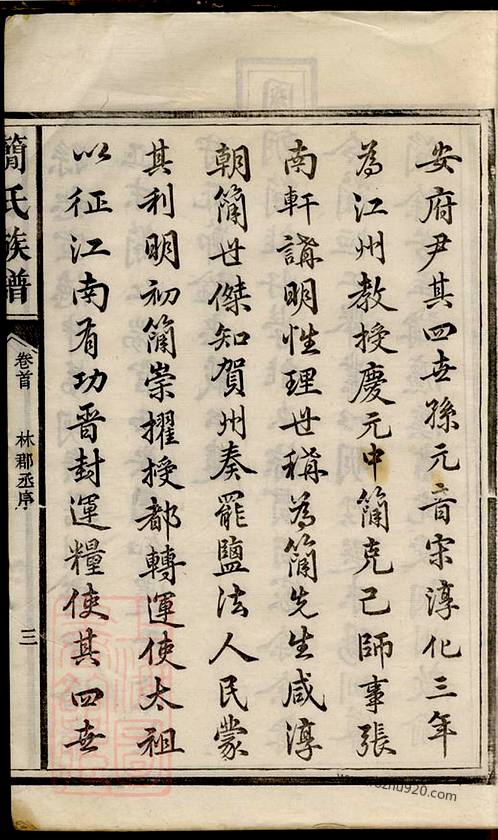 安府尹其四世孫元音宋淳化三年
為江州教授慶元中簡克己師事張
南軒講明性理世稱為簡先生咸淳
朝簡世傑知賀州奏罷鹽法人民蒙
其利明初簡崇擢授都轉運使太祖
以征江南有功晋封運糧使其四世
簡氏族譜
卷首
林郡丞序
三